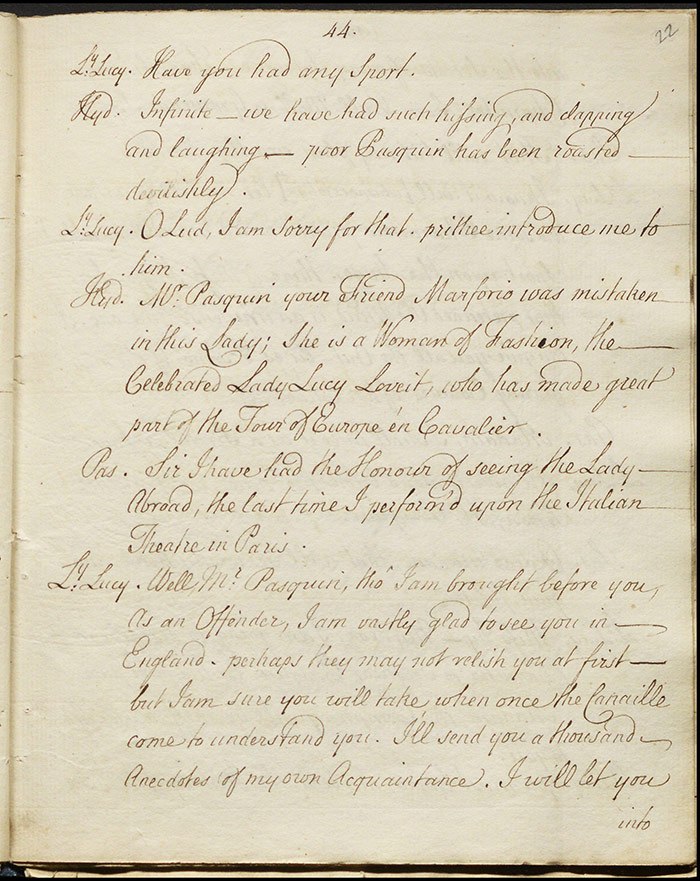 44.
22
Ly. Lucy. Have you had any Sport.
Hyd. Infinite — we have had such hissing, and clapping
and laughing — poor Pasquin has been roasted
devilishly.
Ly. Lucy. O Lud, I am sorry for that. prithee introduce me to
him.
Hyd. Mr. Pasquin your Friend Marforio was mistaken
in this Lady; She is a Woman of Fashion, the
Celebrated Lady Lucy Loveit, who has made great
part of the Tour of Europe én Cavalier.
Pas. Sir I have had the Honour of seeing the Lady
Abroad, the last time I perform'd upon the Italian
Theatre in Paris.
Ly. Lucy. Well, Mr. Pasquin, tho' I am brought before you,
As an Offender, I am vastly glad to see you in —
England. perhaps they may not relish you at first —
but I am sure you will take when once the Canaille
come to understand you. I'll send you a thousand —
Anecdotes of my own Acquaintance. I will let you
into